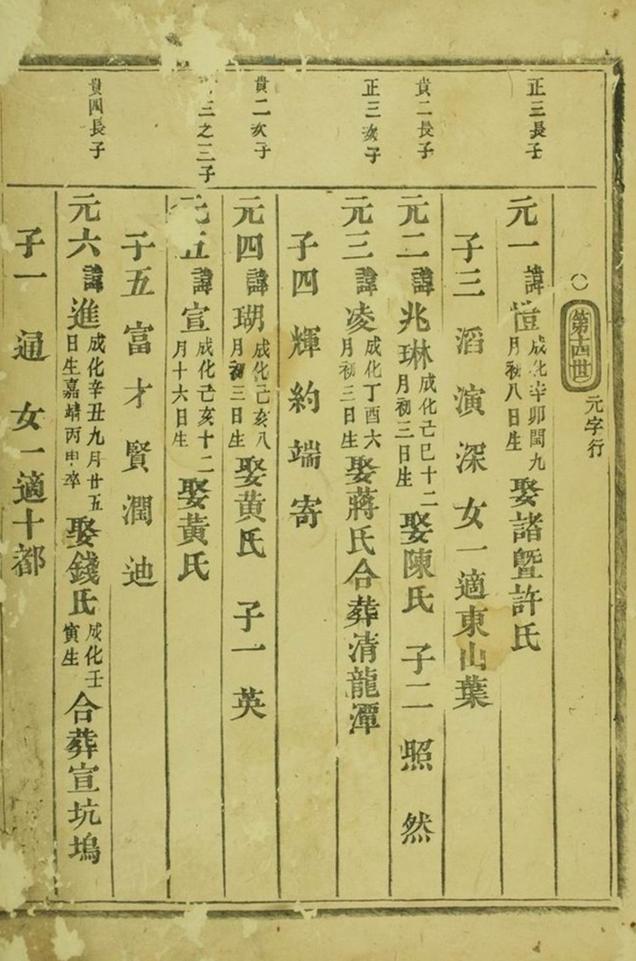 ○第十四世 元字行
正三長子
元一 諱愷 成化辛卯閏九月初八日生 娶諸暨許氏
子三 滔 演 深 女一適東山葉
貴二長子
元二 諱兆琳 成化己巳十二月初三日生 娶陳氏 子二 照 然
正三次子
元三 諱凌 成化丁酉六月初三日生 娶蔣氏合葬清龍潭
子四 輝 約 端 寄
貴二次子
元四 諱瑚 成化己亥八月初三日生 娶黃氏 子一 英
三之三子
元五 諱宣 成化己亥十二月十六日生 娶黃氏
子五 富 才 賢 潤 迪
貴四長子
元六 諱進 成化辛丑九月廿五日生嘉靖丙申卒 娶錢氏 成化壬寅生 合葬宣坑塢
子一 通 女一適十都